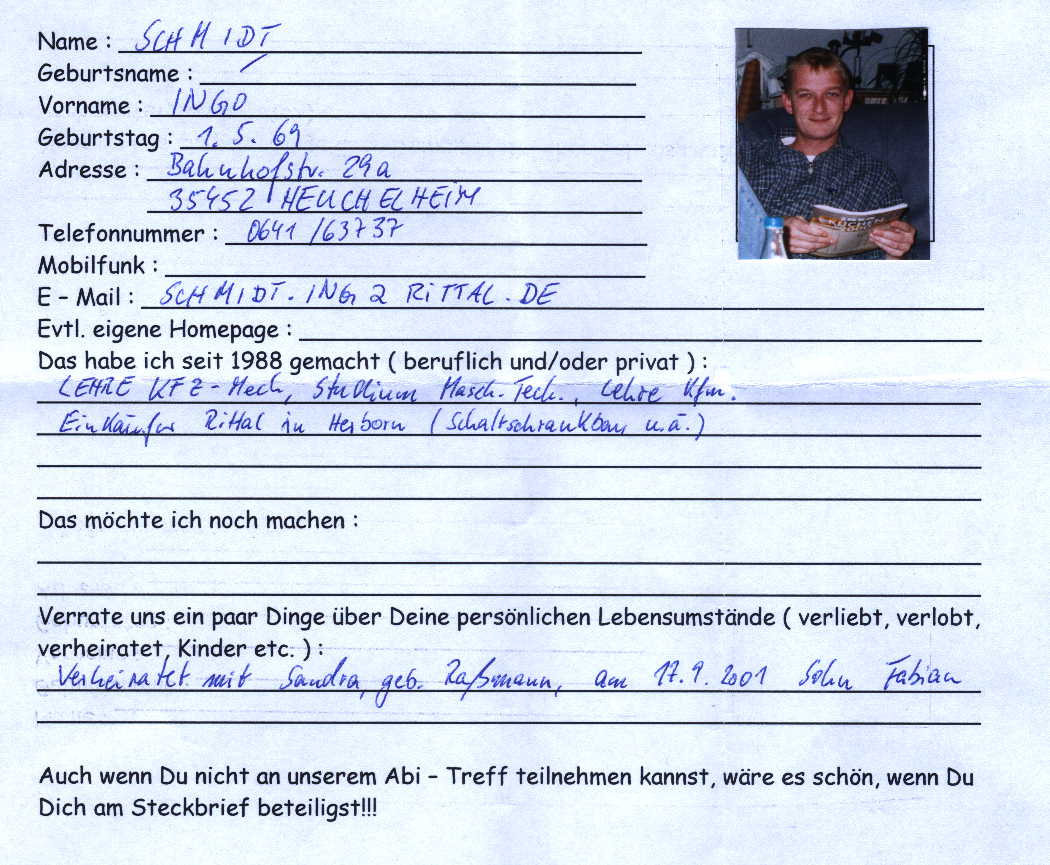 Name : SCHMIDT
Geburtsname : /
Vorname : INGO
Geburtstag : 1. 5. 69
Adresse : Bahnhofstr. 29a
35452 HEUCHELHEIM
Telefonnummer : 0641 / 63737
Mobilfunk :
E – Mail : SCHMIDT. ING 2 RiTTAL . DE
Evtl. eigene Homepage :
Das habe ich seit 1988 gemacht ( beruflich und/oder privat ) :
LEHRE KFZ - Mech, Studium Masch. Tech. , Lehre Kfm.
Einkäufer Rittal in Herborn ( Schaltschrankbau u.ä. )
Das möchte ich noch machen :
Verrate uns ein paar Dinge über Deine persönlichen Lebensumstände ( verliebt, verlobt,
verheiratet, Kinder etc. ) :
Verheiratet mit Sandra, geb. Raßmann, am 17. 9. 2001 Sohn Fabian
Auch wenn Du nicht an unserem Abi – Treff teilnehmen kannst, wäre es schön, wenn Du
Dich am Steckbrief beteiligst!!!